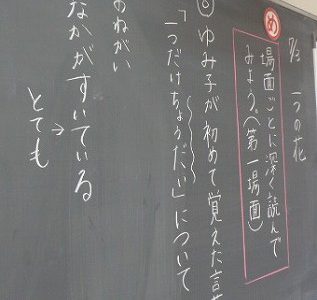 7/3 一つの花
め
場面ごとに深く読んで
みよう。(第一場面)
◎ゆみ子が初めて覚えた言葉
「一つだけちょうだい」について
おねがい
なかがすいている
→とても